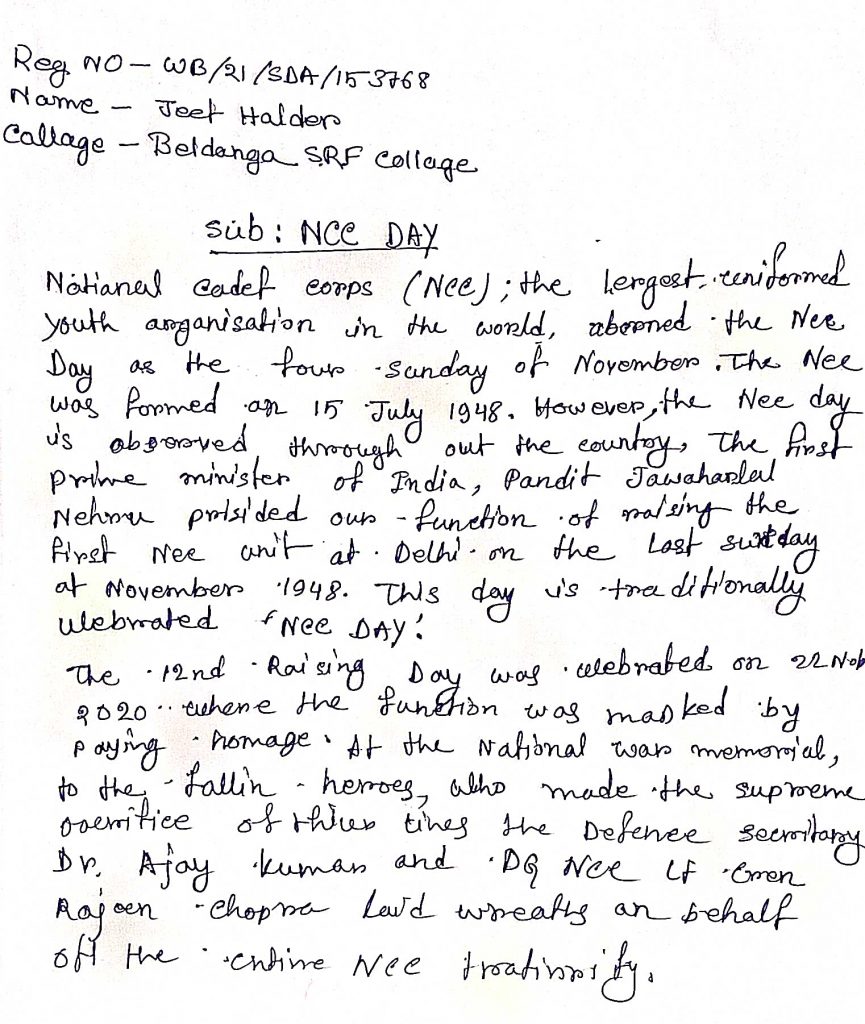 Reg NO - WB/21/SDA/153768
Name - Jeet Halder
Callage - Beldanga SRF collage
Sub : NCC DAY
National cadet corps (NCC) ; the lergest uniformed
youth arganisation in the world, the Ncc
Day as the four Sunday of November . The Ncc
was formed on 15 July 1948. However, the Ncc day
is observed through out the country, The first
prime minister of India, Pandit Jawaharlal
Nehru prisided our function of raising the
first Ncc unit at Delhi on the Last sunday
at November 1948. This day is traditionally
ulebrated "NCC DAY".
The 12nd Raising Day was celebrated on 22 Nob
2020 where the function was masked by
paying homage At the National war memorial,
to the fallin heroes, who made the supreme
of the Defence Secritary
Dr. Ajay kumar and DG NCC Lt
Rajeen chopra laid wreaths an behalf
off the entire NCC